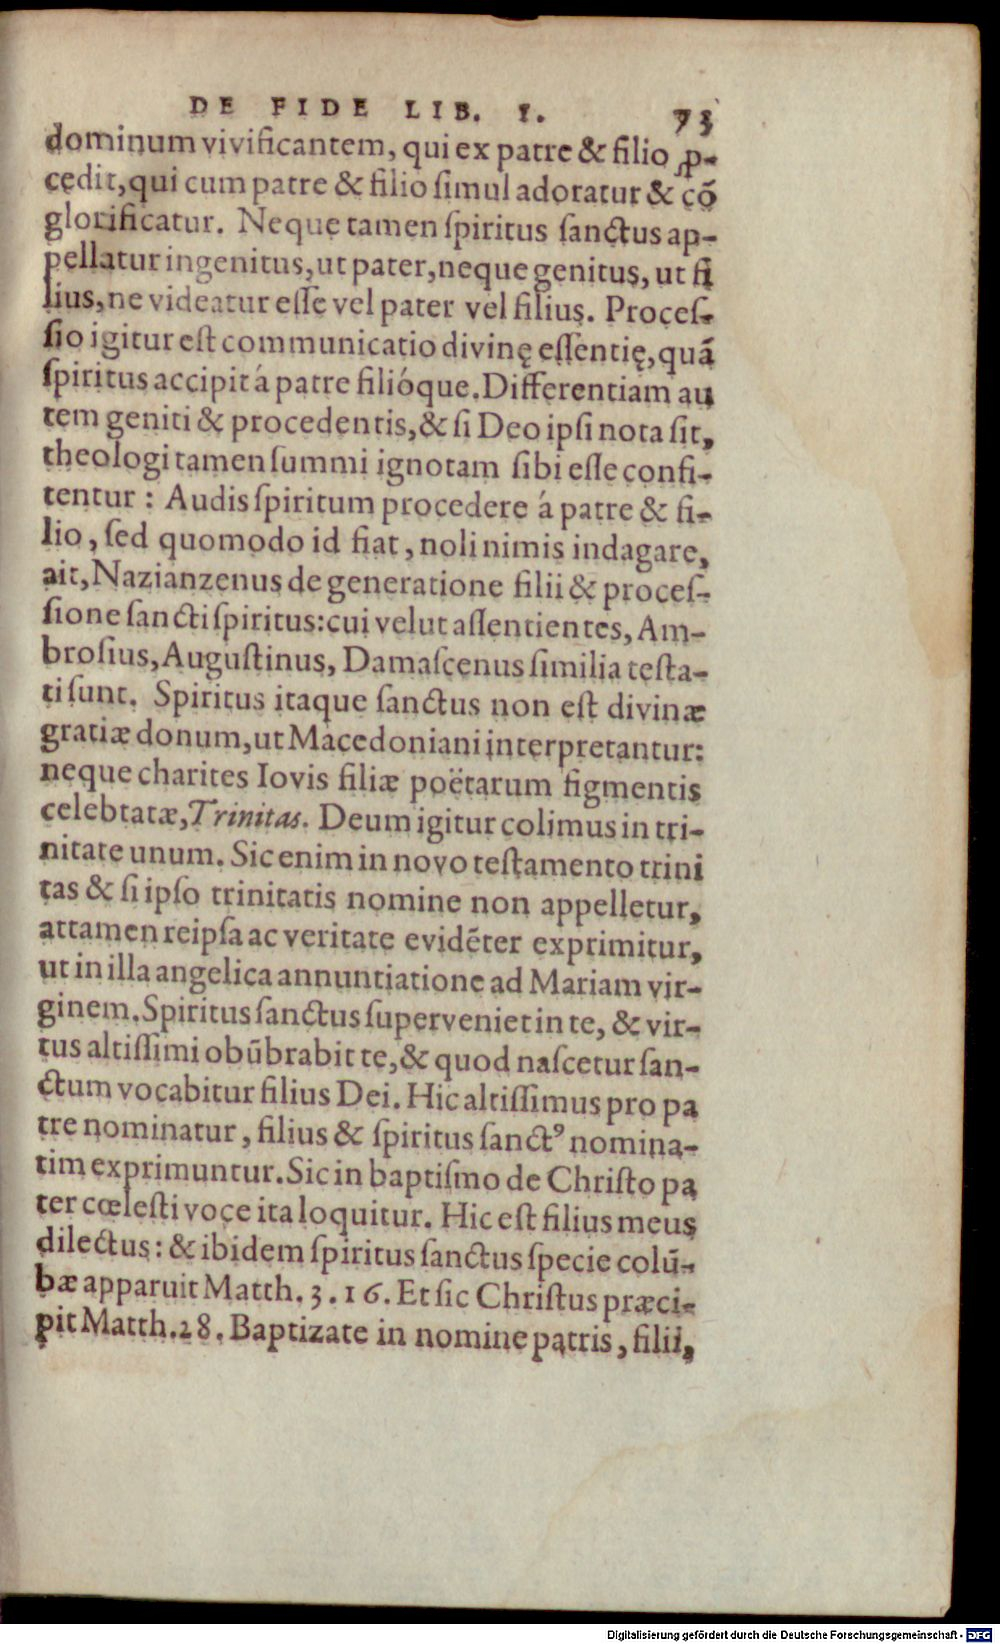 DE FIDE LIB. I. 73
dominum vivificantem, qui ex patre & filio ꝓ-
cedit, qui cum patre & filio ſimul adoratur & cõ
glorificatur. Neque tamen ſpiritus ſanctus ap-
pellatur ingenitus, ut pater, neque genitus, ut fi
lius, ne videatur eſſe vel pater vel filius. Proceſ-
ſio igitur eſt communicatio divinę eſſentię, quã
ſpiritus accipit á patre filióque. Differentiam au
tem geniti & procedentis, & ſi Deo ipſi nota ſit,
theologi tamen ſummi ignotam ſibi eſſe confi-
tentur : Audis ſpiritum procedere á patre & fi-
lio, ſed quomodo id fiat, noli nimis indagare,
ait, Nazianzenus de generatione filii & proceſ-
ſione ſancti ſpiritus: cui velut aſſentientes, Am-
broſius, Auguſtinus, Damaſcenus ſimilia teſta-
ti ſunt. Spiritus itaque ſanctus non eſt divinæ
gratiæ donum, ut Macedoniani interpretantur:
neque charites Iovis filiæ poëtarum figmentis
celebtatæ, Trinitas. Deum igitur colimus in tri-
nitate unum. Sic enim in novo teſtamento trini
tas & ſi ipſo trinitatis nomine non appelletur,
attamen reipſa ac veritate evidẽter exprimitur,
ut in illa angelica annuntiatione ad Mariam vir-
ginem. Spiritus ſanctus ſuperveniet in te, & vir-
tus altiſſimi obũbrabit te, & quod naſcetur ſan-
ctum vocabitur filius Dei. Hic altiſſimus pro pa
tre nominatur, filius & ſpiritus ſanctꝰ nomina-
tim exprimuntur. Sic in baptiſmo de Chriſto pa
ter cœleſti voce ita loquitur. Hic eſt filius meus
dilectus: & ibidem ſpiritus ſanctus ſpecie colũ-
bæ apparuit Matth. 3. 16. Et ſic Chriſtus præci-
pit Matth. 28. Baptizate in nomine patris, filii,
Digitalisierung gefördert durch die Deutsche Forschungsgemeinschaft - DFG